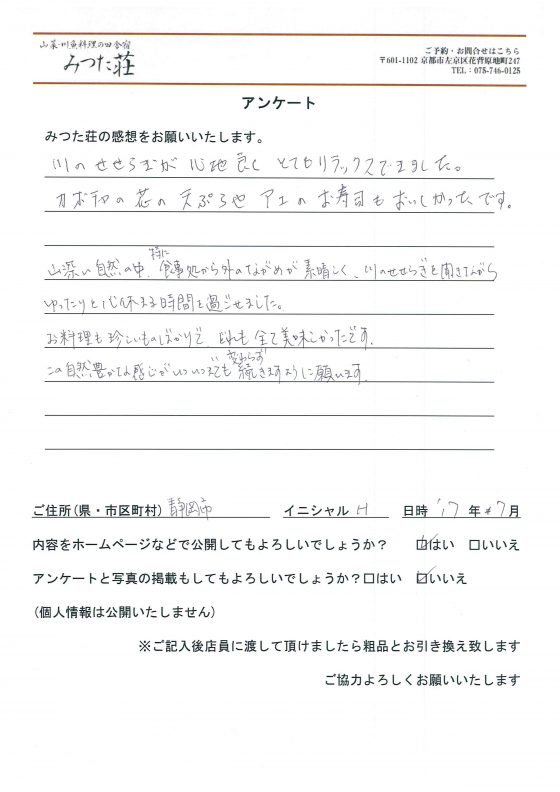 山菜・川魚料理の田舎宿
みつた荘
ご予約・お問合せはこちら
〒601-1102 京都市左京区花背原地町247
TEL：075-746-0125
アンケート
みつた荘の感想をお願いいたします。
川のせせらぎが心地良く とてもリラックスできました。
カボチャの花の天ぷらや アユのお寿司もおいしかったです。
山深い自然の中、特に食事処から外のながめが素晴しく、川のせせらぎを聞きながら
ゆったりと心休まる時間を過ごせました。
お料理も珍しいものばかりで どれも全て美味しかったです。
この自然豊かな感じがいついつまでも変わらず続きますように願います。
ご住所(県・市区町村) 静岡市 イニシャル H 日時 '17 年 7 月
内容をホームページなどで公開してもよろしいでしょうか？ ☑はい □いいえ
アンケートと写真の掲載もしてもよろしいでしょうか？□はい ☑いいえ
(個人情報は公開いたしません)
※ご記入後店員に渡して頂けましたら粗品とお引き換え致します
ご協力よろしくお願いいたします